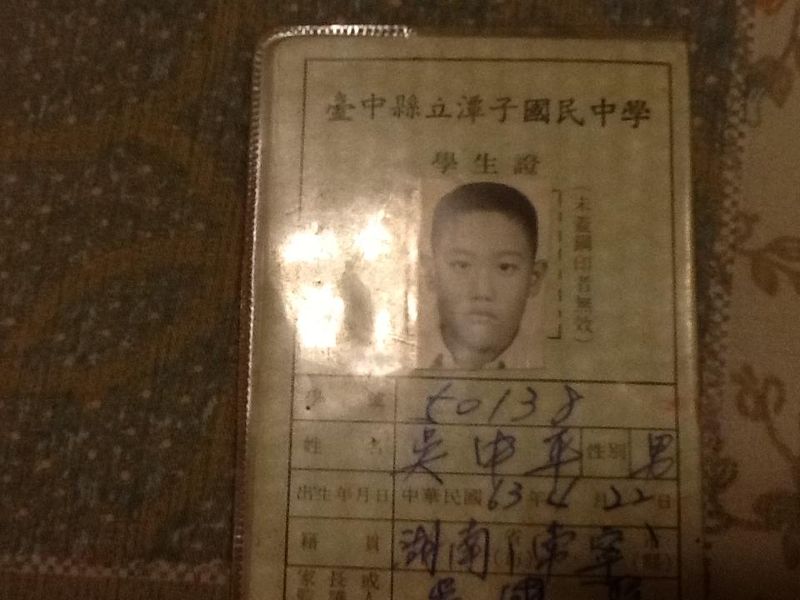 臺中縣立潭子國民中學
學生證
(未蓋鋼印者無效)
學 號 50138
姓 名 吳中平 性別 男
出生年月日 中華民國 63年 月22日
籍 貫 湖南省
家長或